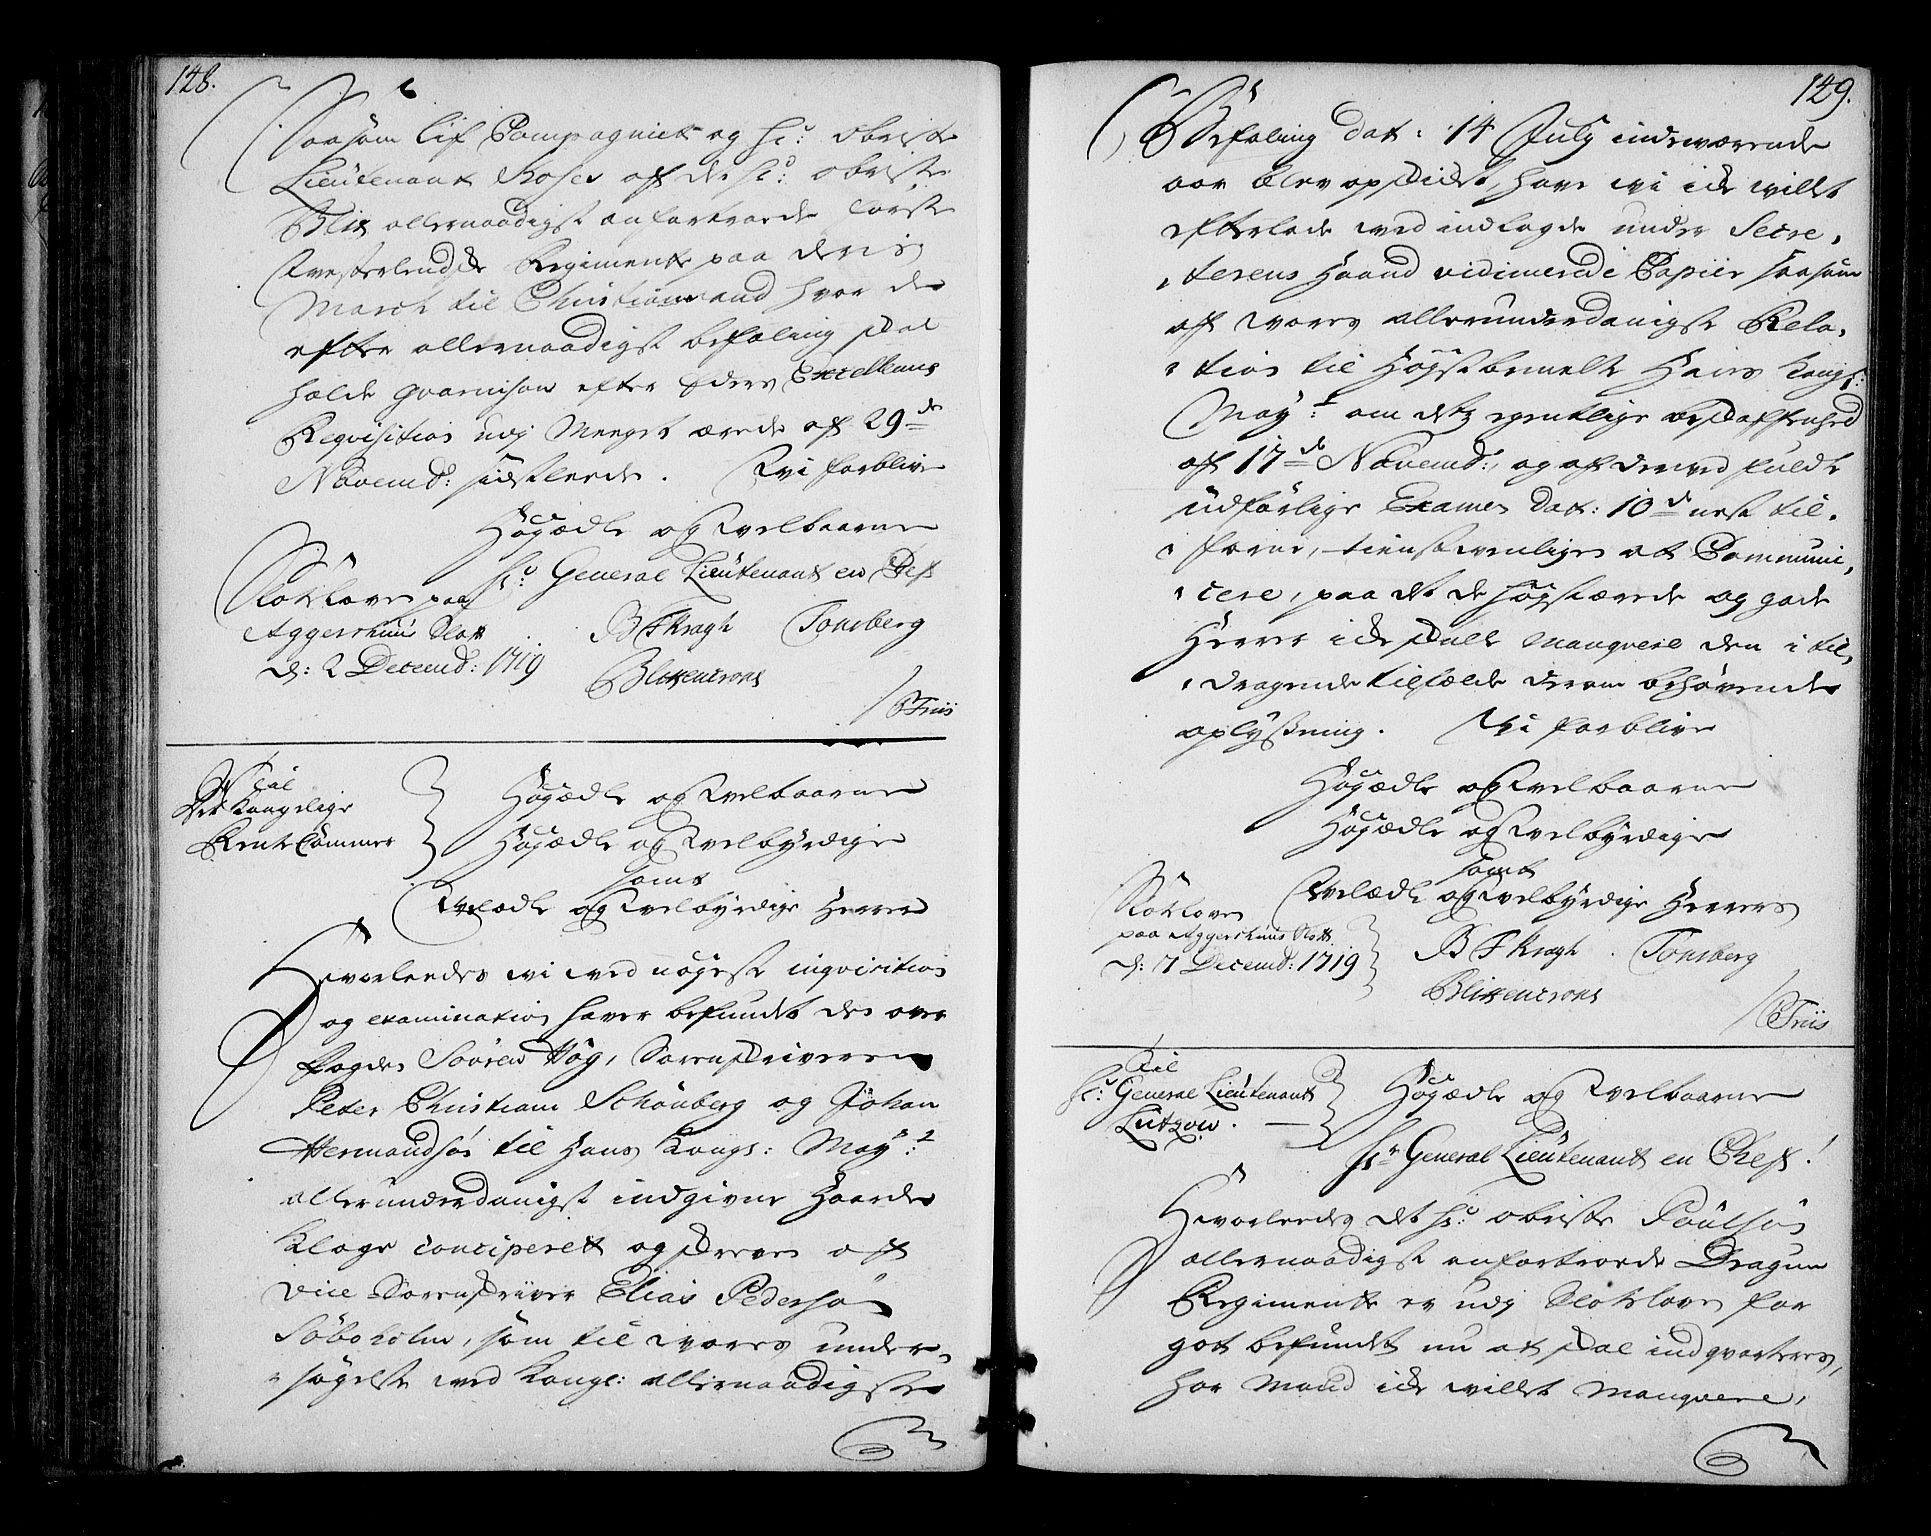 128.
Saasom lif Compagniet og hr: Obriste
Lieutenant Roses af det hr: Obriste
Blix allernaadigst anfortroede første
Westerlendske Regimente paa deris
March til Christiansand hvor de
efter allernaadigst befaling skal
holde Guarnison efter Eders Excellences
Requisition udj Meeget ærede af 29de
Novemb: sidstleede. Wi forblive
Høyædle og Velbaarne
hr: General Lieutenant en Chef
Slotsloven paa
Aggershuus Slott
d: 2 Decemb: 1719
B F Kragh Tonsberg
Blixencrone
/ P Friis
Til
Det Kongelige
Rente Cammer
Høyædle og Velbaarne
Høyædle og Velbyrdige
samt
Velædle og Velbyrdige Herrer
Hvorleedes wi ved nøyeste inqvisition
og examination haver befundet den over
Fogden Søren Høg, Sorenskriveren
Peter Christian Schønberg og Johan
Hermandsøn til Hans Kongl: May:t
allerunderdanigst indgivne haarde
Klage conciperet og skreven af
Vice Sorenskriver Elias Pedersøn
Søboholm, som til vores under-
søgelse ved Kongl: allernaadigste
129.
Befaling dat: 14 July indeværende
aar blev opskicket, have wi icke willet
efterlade ved indlagde under Secre-
terens Haand vidimerede Papiir saasom
af vores allerunderdanigste Rela-
tion til Høystbemelte Hans Kongl:
May:t om dets egentlige beskaffenhed
af 17de Novemb:, og af derved fuldte
udførlige Examen dat: 10de nest til-
forne, tienstvenligen at Communi-
cere, paa det de høystærede og gode
Herrer icke skulle manqvere den i til-
dragende tilfælde derom behøvende
oplyßning. Wi forblive
Høyædle og Velbaarne
Høyædle og Velbyrdige
samt
Velædle og Velbyrdige Herrers
Slotsloven
paa Aggershuus Slott
d: 7 Decemb: 1719
B F Kragh. Tonsberg
Blixencrone
/ P Friis
Til
hr: General Lieutenant
Lützow.
Høyædle og Velbaarne
Hr General Lieutenant en Chef!
Hvorleedes det hr: Obriste Poulsøn
allernaadigst anfortroede Dragun
Regimente er udj Slotsloven for
got befundet nu at skal indqvarteres,
har mand icke willet manqvere,